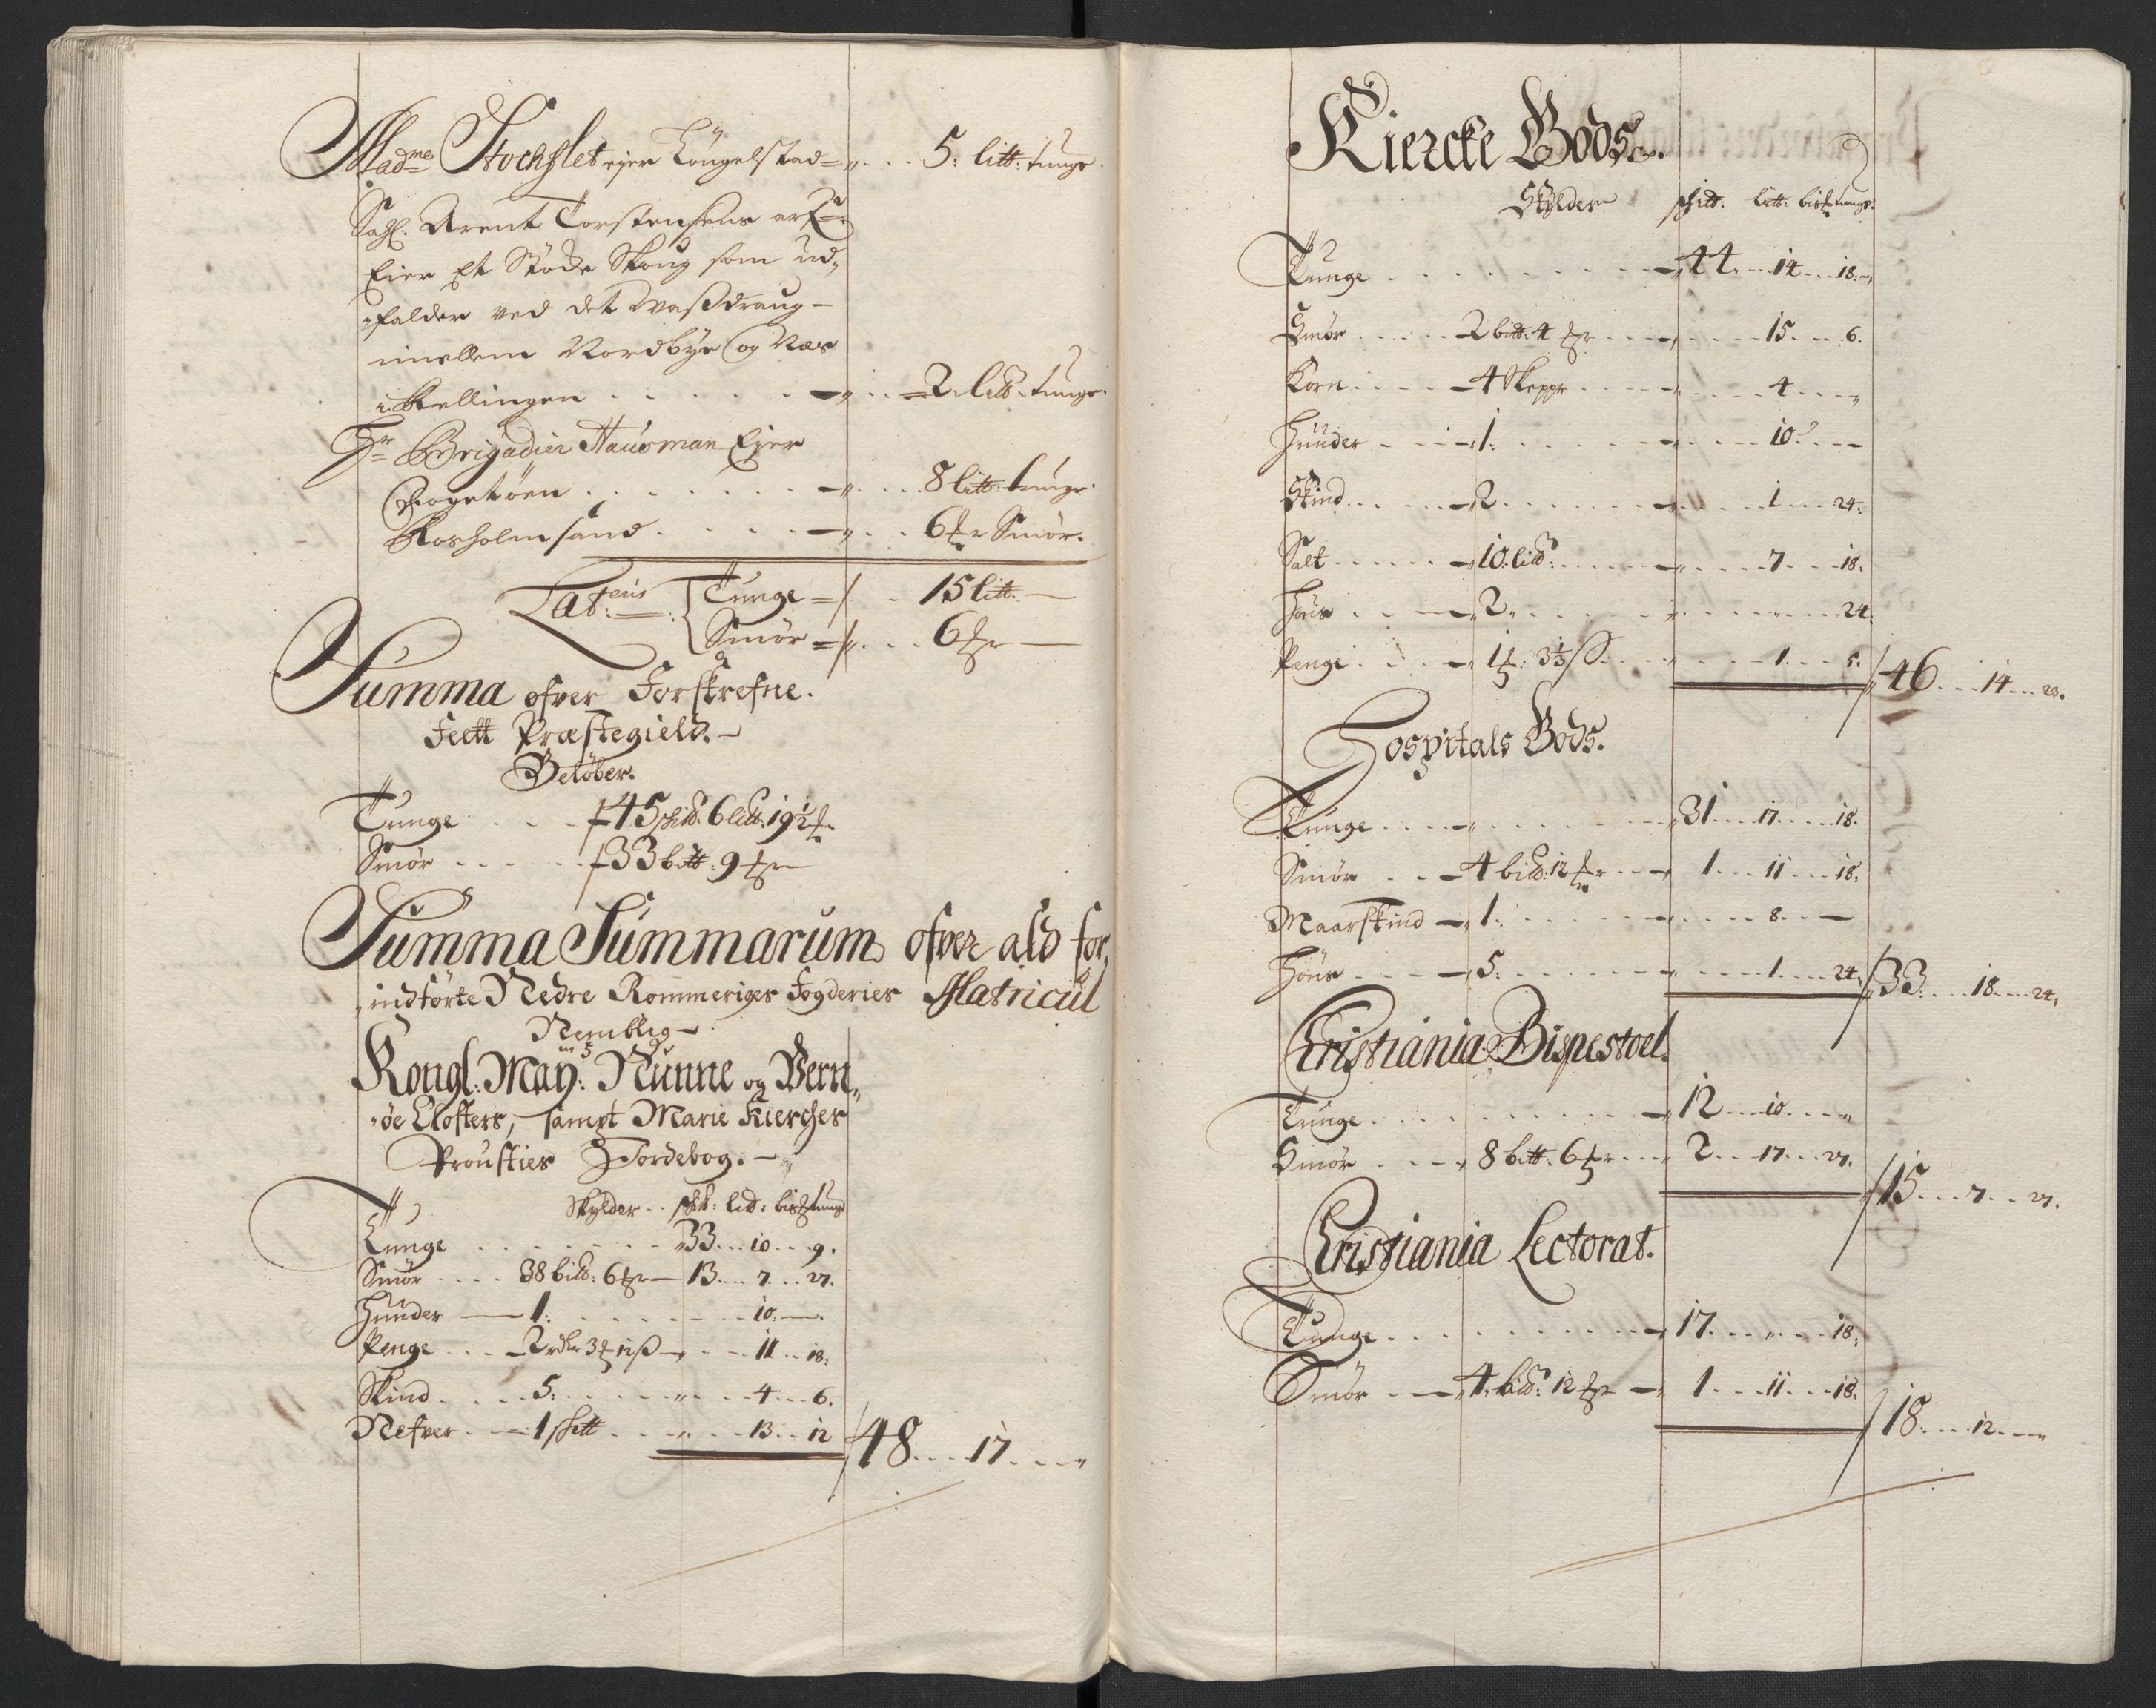 Mad:me Stochflet ejer Longelstad = „ . . . 5: litt: tunge.
Sahl. Arent Torstensens arf:
Eier Et Støche Skoug som ud„
„falder ved det Wasdraug –
imellem Nordbye og Næs
i Rellingen . . . . . – „ . . = 2. litt. tunge.
Hr Brigadier Hausman Ejer
Fogetøen . . . . . . – „ . . . 8 litt: tunge.
Rosholm sand . . . . – „ . . . 6 ℔r Smør.
Lat:eris { Tunge = / . 15 litt. —
Smør = / . . . 6 ℔r —
Summa ofver Forskrefne.
Feett Præstegield. –
Beløber.
Tunge . . . . 45 skitt. 6 litt. 19½ ℔.
Smør . . . . . 33 bitt: 9 ℔r
Summa Summarum ofver ald for„
„indførte Nedre Rommeriges Fogderies Matricul
Nemblig –
Kongl: May:ts Nunne og Vern„
„øe Closters, sampt Marie Kierches
Prousties Jordebog. – „
Skylder . . skitt: litt: bis℔ tunge
Tunge . . . . . . . „ 33 . . . 10 . . . 9.
Smør . . . . 38 bitt: 6 ℔r — 13 . . . 7 . . . 27.
Hunder — 1: . . . . . . . 10. —
Penge . . . – 2 rdr 3 ℔ 12 ß – „ . . . 11 . . 18:
Skind . . . . 5: . . . . . „ . . . 4 . . . 6.
Nefver . . – 1 skitt . . . „ . . . 13 . . 12
48 . . . 17. . . . „
Kiercke Gods.
Skylder skitt. litt: bis℔ tunge.
Tunge . . . . . . . . . – „ 44 „ . . . 14 . . . 18. –
Smør . . . . – 2 bitt. 4 ℔r . . . . – „ . . . . 15 . . . . 6.
Korn . . . . – 4 Skeppr . . . . – „ . . . . 4 . . . . „
Hunder . . – „ 1: . . . . . . – „ . . . . 10. . . —
Skind . . . . – „ 2 . . . . . . – „ . . . . 1 . . . 24.
Salt . . . . . – „ 10. litt: . . . . – „ . . . . 7 . . . 18.
Høns . . . – „ 2 „ . . . . . . „ . . . . „ . . . . 24.
Penge . . . . – „ 1 ℔: 3⅓ ß . . . . „ . . . . 1 . . . 5.
46 . . . 14 . . . 23.
Hospitals Gods.
Tunge . . . . – „ . . . . . . – „ 31 . . . 17. . . . 18.
Smør . . – 4 bitt: 12 ℔r . . – „ 1 . . . 11 . . . 18.
Maarskind – „ 1. . . . . . – „ . . . . 8. . . —
Høns . . . – „ 5: . . . . . . – „ . . . . 1 . . . 24.
33. . . . 18 . . . 24.
Cristiania Bispestoel.
Tunge . . . . . . . . . . – „ 12 . . . 10 . . . . „
Smør . . . – „ 8 bitt. 6 ℔r . . – „ 2 . . . 17 . . . 27.
15 . . . 7 . . . 27.
Cristiania Lectorat.
Tunge . . . . . . . . . . – „ 17. . . . „ . . . 18.
Smør . – – „ 4. bitt: 12 ℔r – „ 1 . . . 11 . . . 18.
18. . . . 12. . . . „